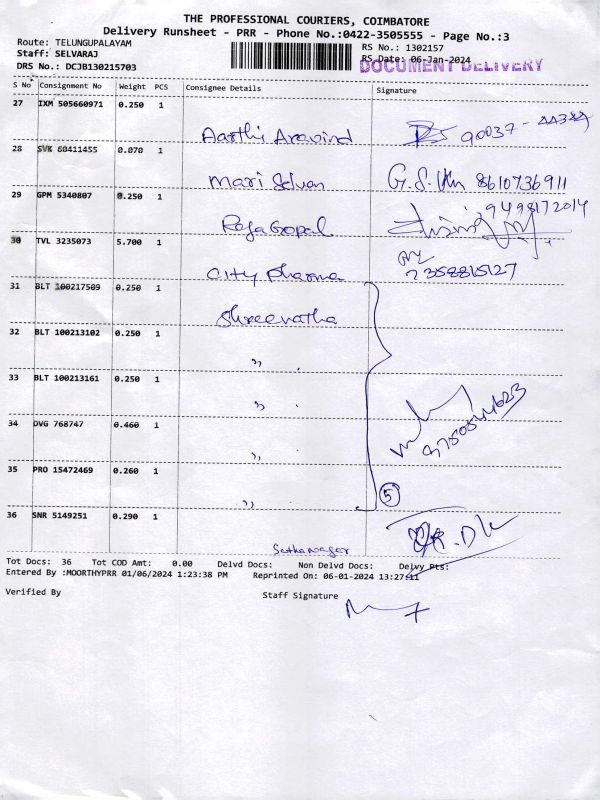 THE PROFESSIONAL COURIERS, COIMBATORE
Delivery Runsheet - PRR - Phone No.:0422-3505555 - Page No.:3
Route: TELUNGUPALAYAM
RS No.: 1302157
Staff: SELVARAJ
RS Date: 06-Jan-2024
DOCUMENT DELIVERY
DRS No.: DCJB130215703
S No Consignment No Weight PCS Consignee Details Signature
27 IXM 505660971 0.250 1
Aarthi Aravind
28 SVK 60411455 0.070 1
Mari Selvan 8610736911
29 GPM 5340807 0.250 1
9498172014
RajaGopal
30 TVL 3235073 5.700 1
City pharma
31 BLT 100217509 0.250 1
Shreevatha
32 BLT 100213102 0.250 1
,,
33 BLT 100213161 0.250 1
,,
34 DVG 768747 0.460 1
,,
35 PRO 15472469 0.260 1
,, 5
36 SNR 5149251 0.290 1
Tot Docs: 36 Tot COD Amt: 0.00 Delvd Docs: Non Delvd Docs: Delvy Pts:
Entered By :MOORTHYPRR 01/06/2024 1:23:38 PM Reprinted On: 06-01-2024 13:27:11
Verified By Staff Signature